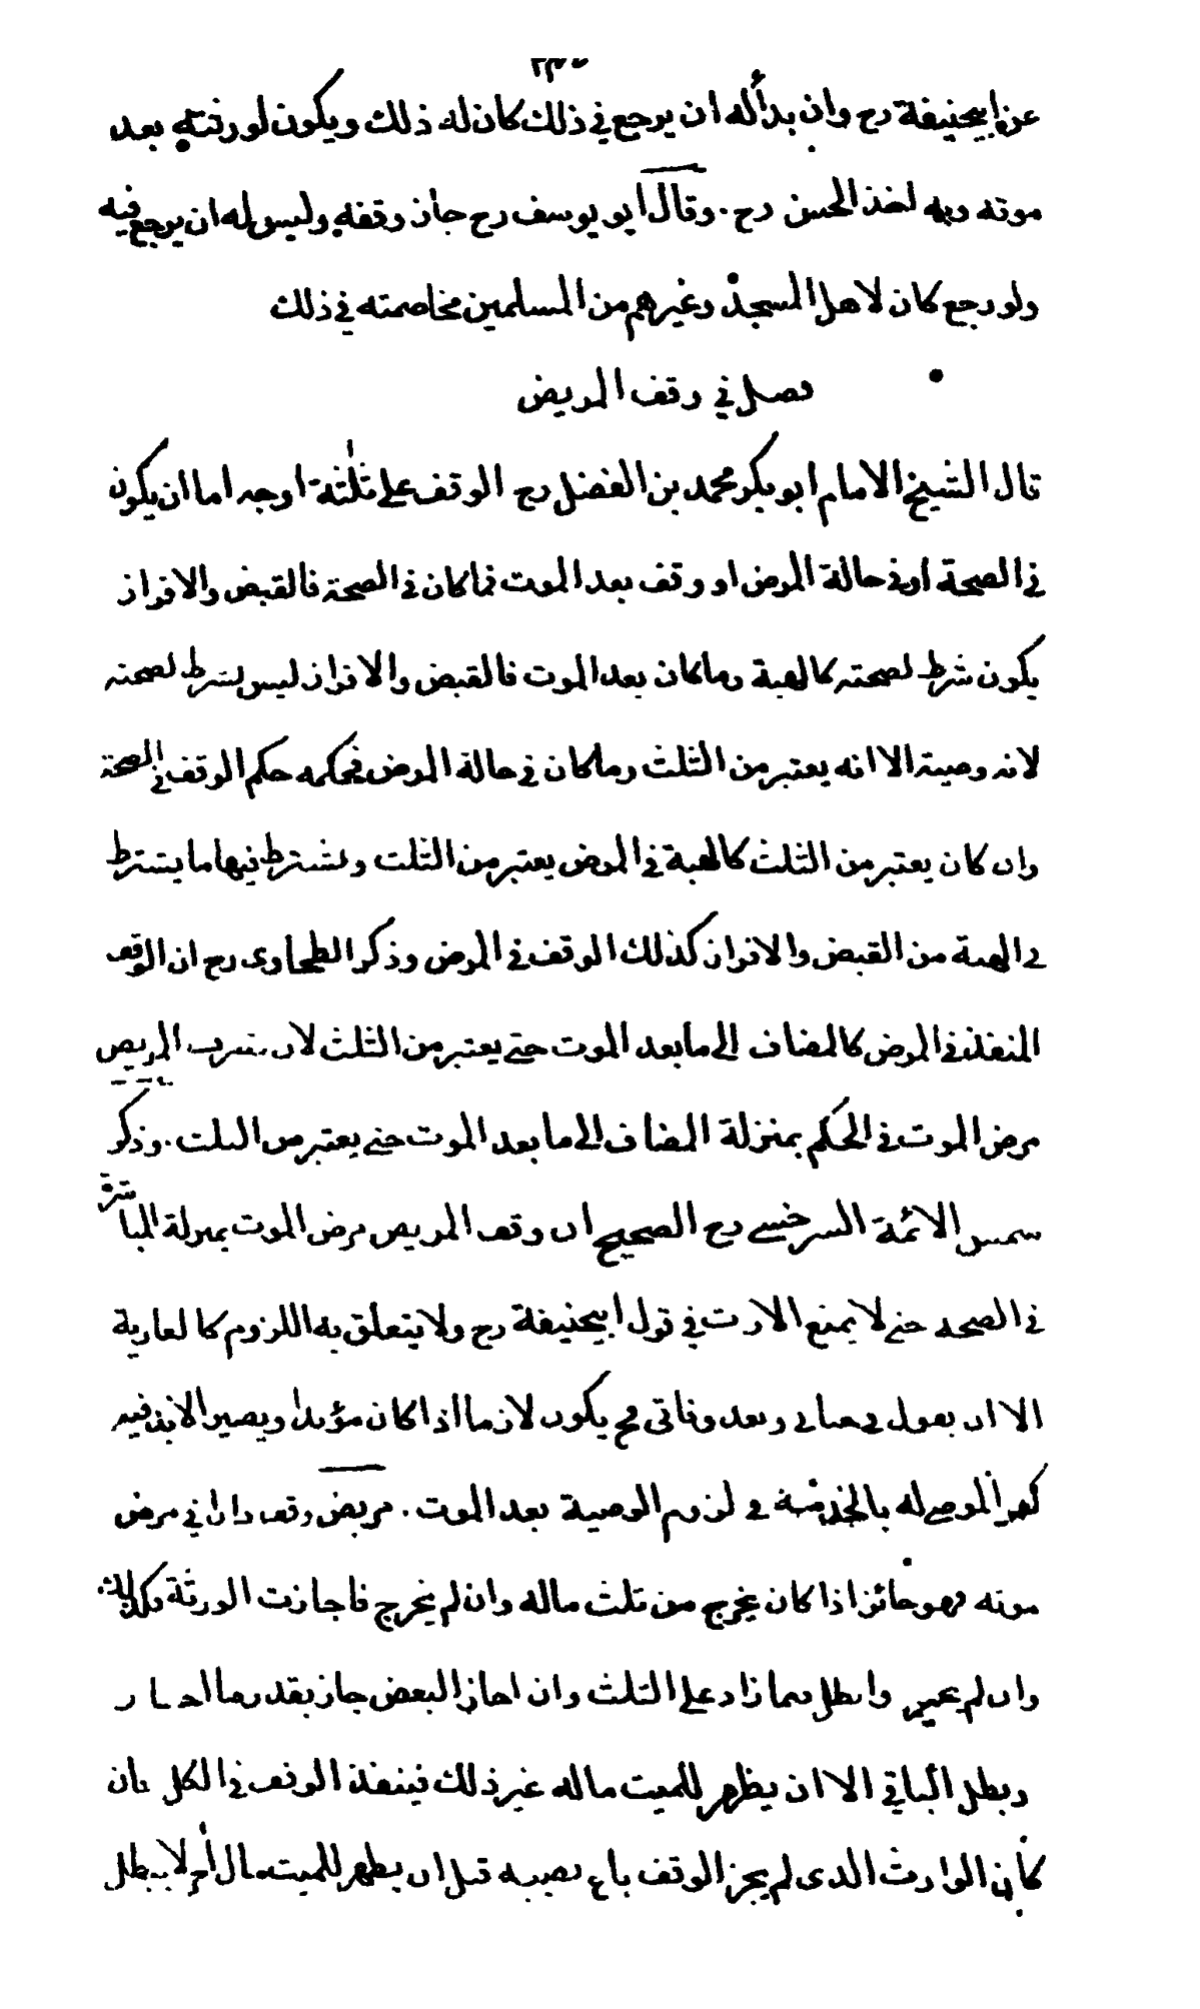 عن ابيحنيفة رح وان بدأله ان يرجع في ذلك كان له ذلك ويكون لورثته بعد
موته وبه اخذ الحسن رح . وقال ابو يوسف رح جاز وقفه وليس له ان يرجع فيه
ولو رجع كان لاهل المسجد وغيرهم من المسلمين مخاصمته في ذلك
فصل في وقف المريض
قال الشيخ الامام ابو بكر محمد بن الفضل رح الوقف على ثلثة اوجه اما ان يكون
في الصحة او في حالة المرض او وقف بعد الموت فما كان في الصحة فالقبض والافراز
يكون شرط لصحته كالهبة وما كان بعد الموت فالقبض والافراز ليس بشرط لصحته
لانه وصية الا انه يعتبر من الثلث وما كان في حالة المرض فحكمه حكم الوقف في الصحة
وان كان يعتبر من الثلث كالهبة في المرض يعتبر من الثلث ويشترط فيها ما يشترط
في الهبة من القبض والافراز كذلك الوقف في المرض وذكر الطحاوى رح ان الوقف
المنفذ في المرض كالمضاف الى ما بعد الموت حتى يعتبر من الثلث لان تصرف المريض
مرض الموت في الحكم بمنزلة المضاف الى ما بعد الموت حتى يعتبر من الثلث . وذكر
شمس الائمة السرخسي رح الصحيح ان وقف المريض مرض الموت بمنزلة المباشرة
في الصحة حتى لا يمنع الارث في قول ابيحنيفة رح ولا يتعلق به اللزوم كالعارية
الا ان يقول في حياتى وبعد وفاتى فح يكون لازما اذا كان مؤبدا ويصير الابد فيه
كعمر الموصى له بالخدمة في لزوم الوصية بعد الموت . مريض وقف دارا في مرض
موته فهو جائز اذا كان يخرج من ثلث ماله وان لم يخرج فاجازت الورثة فكذلك
وان لم يجيزوا بطل بما زاد على الثلث وان اجاز البعض جاز بقدر ما اجاز
وبطل الباقي الا ان يظهر للميت ماله غير ذلك فينفذ الوقف في الكل فان
كان الوارث الذى لم يجز الوقف باع نصيبه قبل ان يظهر للميت مال آخر لا يبطل